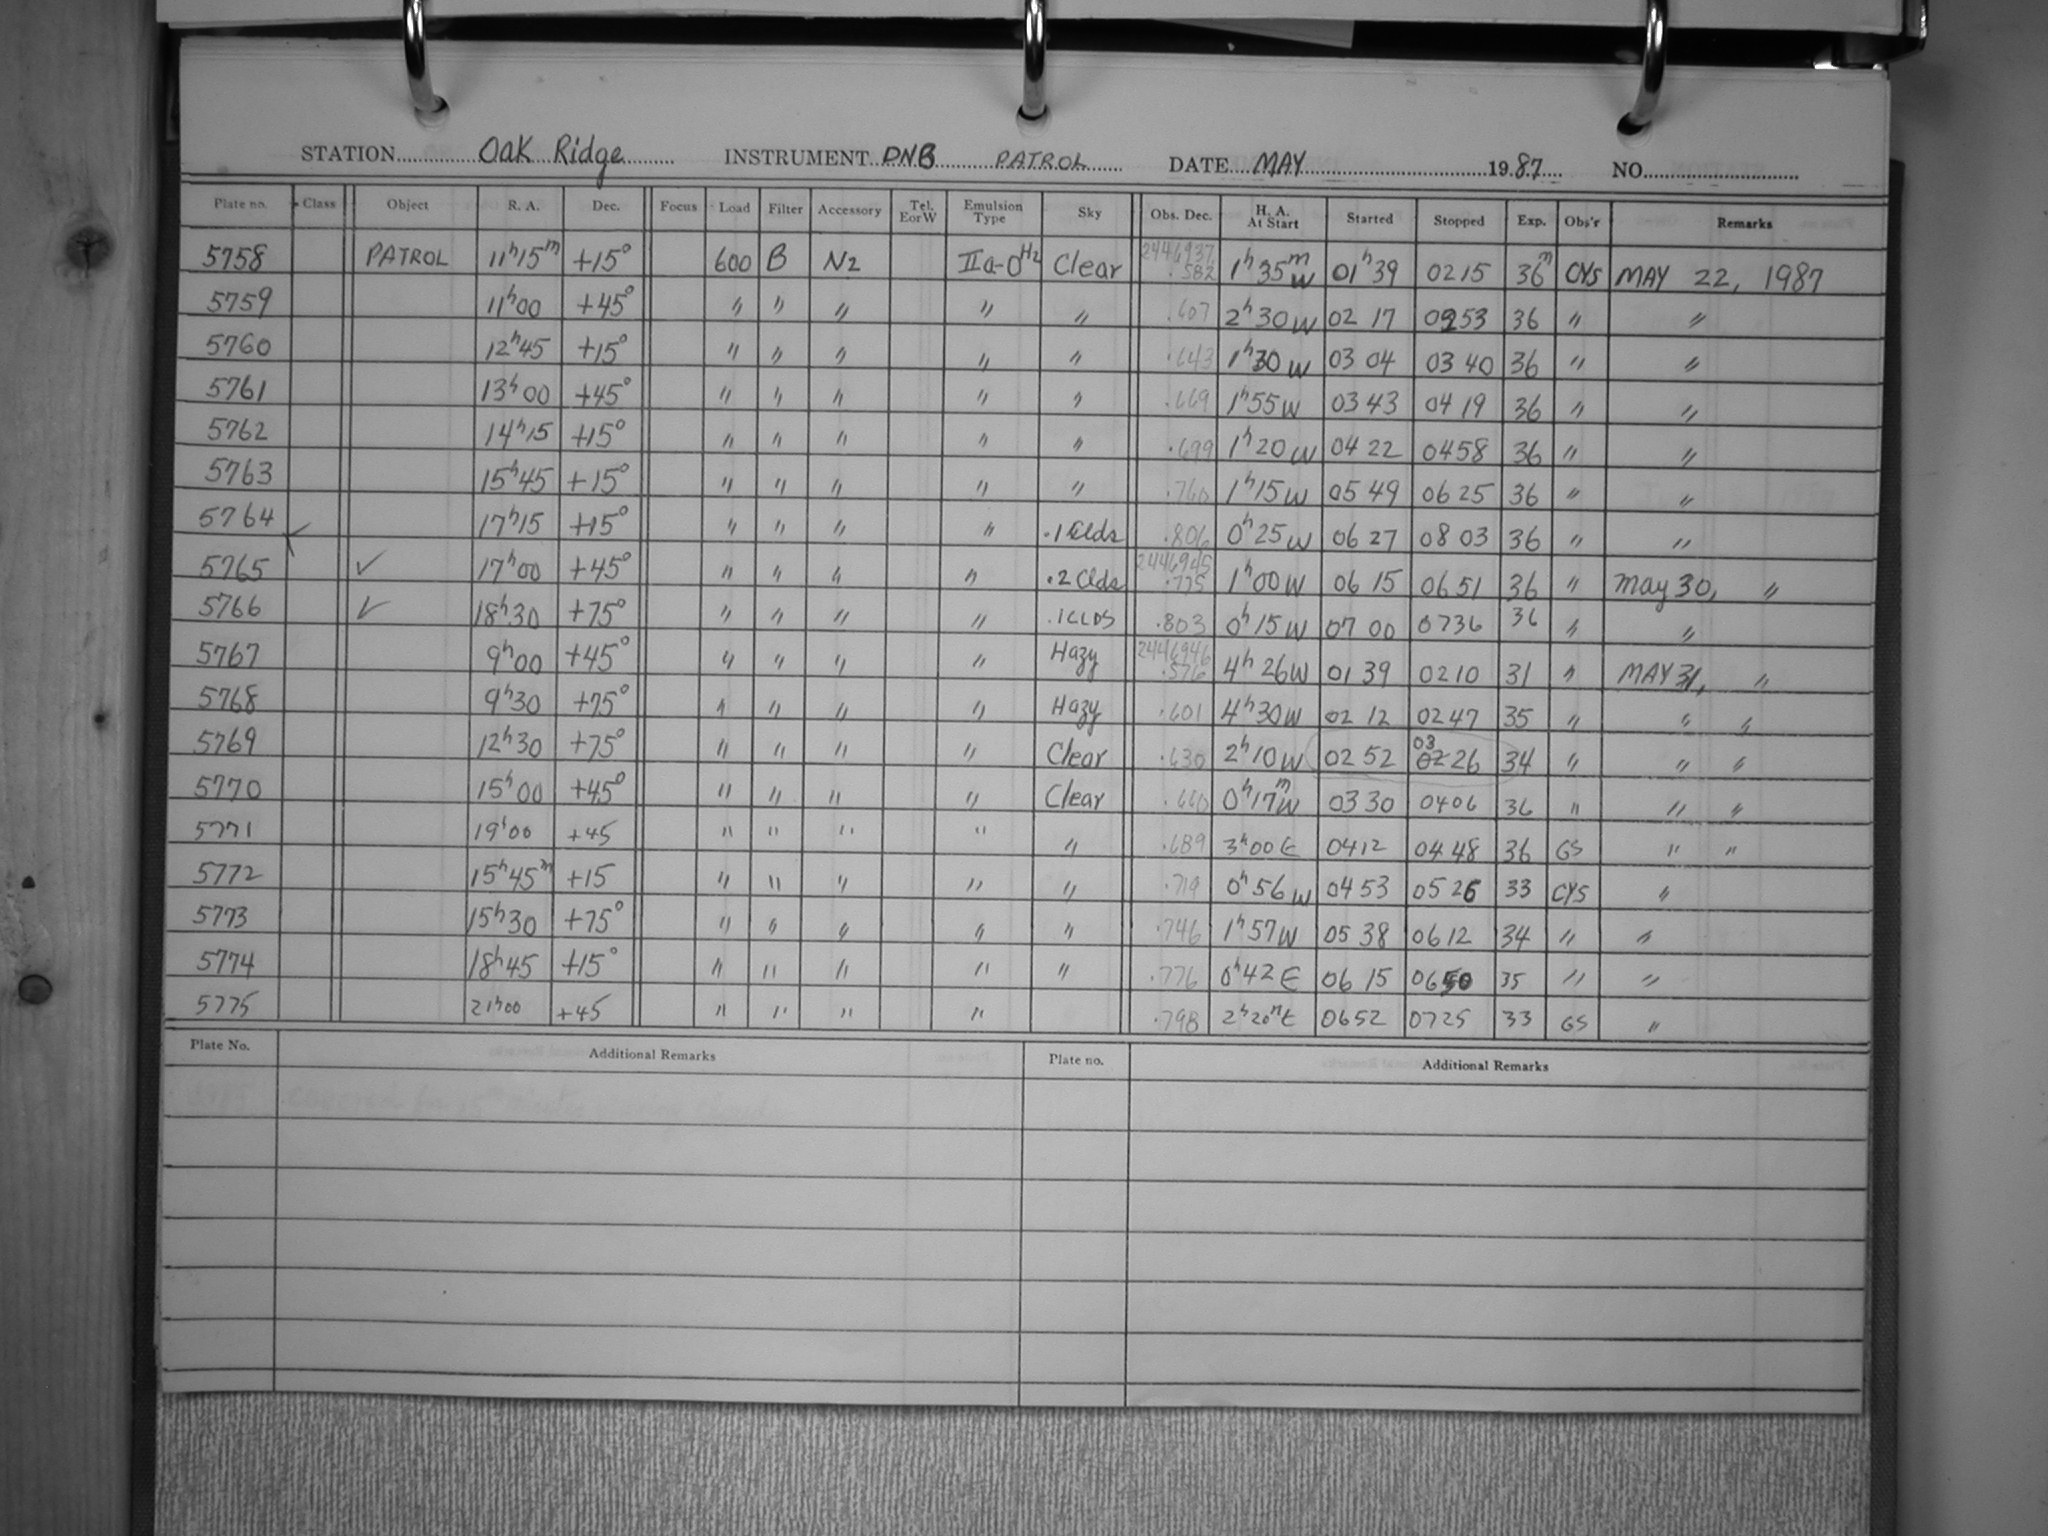 STATION Oak Ridge INSTRUMENT DNB PATROL DATE MAY 1987 NO.
Plate no. Class Object R. A. Dec. Focus Load Filter Accessory Tel. E or W Emulsion Type Sky Obs. Dec. H. A. At Start Started Stopped Exp. Obs'r Remarks
5758 PATROL 11h15m +15° 600 B N2 IIa-O H2 Clear 2446937.582 1h35m W 01h39 0215 36m CYS MAY 22, 1987
5759 11h00 +45° " " " " " .607 2h30 W 02 17 0253 36 " "
5760 12h45 +15° " " " " " .643 1h30 W 03 04 03 40 36 " "
5761 13h00 +45° " " " " " .669 1h55 W 03 43 04 19 36 " "
5762 14h15 +15° " " " " " .699 1h20 W 04 22 0458 36 " "
5763 15h45 +15° " " " " " .760 1h15 W 05 49 06 25 36 " "
5764 17h15 +15° " " " " .1 Clds .806 0h25 W 06 27 08 03 36 " "
5765 ✓ 17h00 +45° " " " " .2 Clds 2446945.775 1h00 W 06 15 06 51 36 " May 30, "
5766 ✓ 18h30 +75° " " " " .1 CLDS .803 0h15 W 07 00 0736 36 " "
5767 9h00 +45° " " " " Hazy 2446946.576 4h26 W 01 39 0210 31 " MAY 31, "
5768 9h30 +75° " " " " Hazy .601 4h30 W 02 12 02 47 35 " " "
5769 12h30 +75° " " " " Clear .630 2h10 W 02 52 03 26 34 " " "
5770 15h00 +45° " " " " Clear .660 0h17m W 03 30 0406 36 " " "
5771 19h00 +45 " " " " " .689 3h00 E 0412 04 48 36 GS " "
5772 15h45m +15 " " " " " .719 0h56 W 04 53 05 26 33 CYS "
5773 15h30 +75° " " " " " .746 1h57 W 05 38 06 12 34 " "
5774 18h45 +15° " " " " " .776 0h42 E 06 15 0650 35 " "
5775 21h00 +45 " " " " .798 2h20m E 0652 0725 33 GS "
Plate No. Additional Remarks Plate no. Additional Remarks